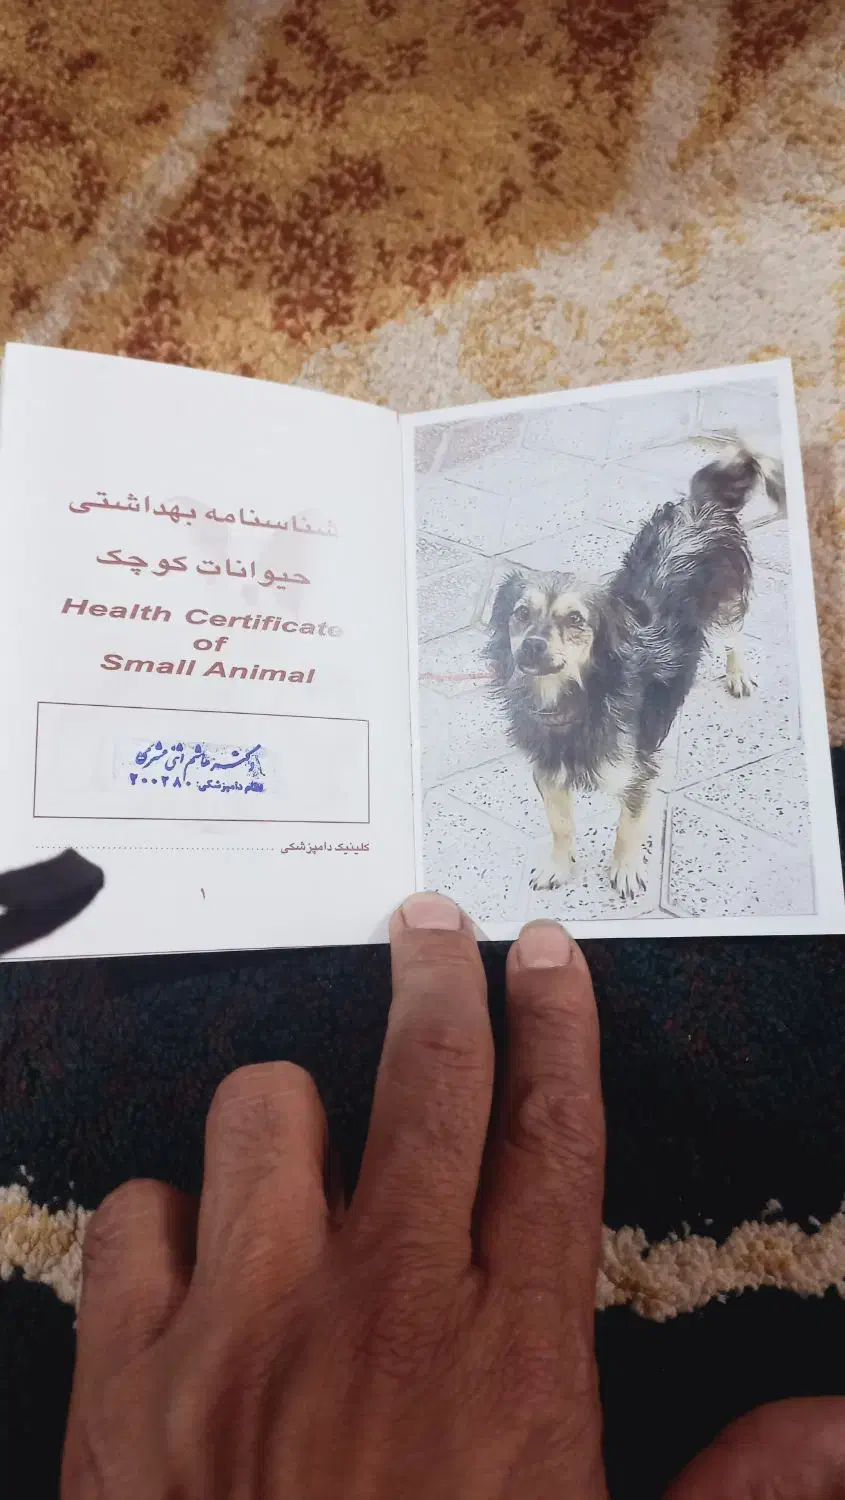 شناسنامه بهداشتی
حیوانات کوچک
Health Certificate
of
Small Animal
دکتر هاشم اثنی عشری
نظام دامپزشکی: ۲۰۰۲۸۰
کلینیک دامپزشکی
۱